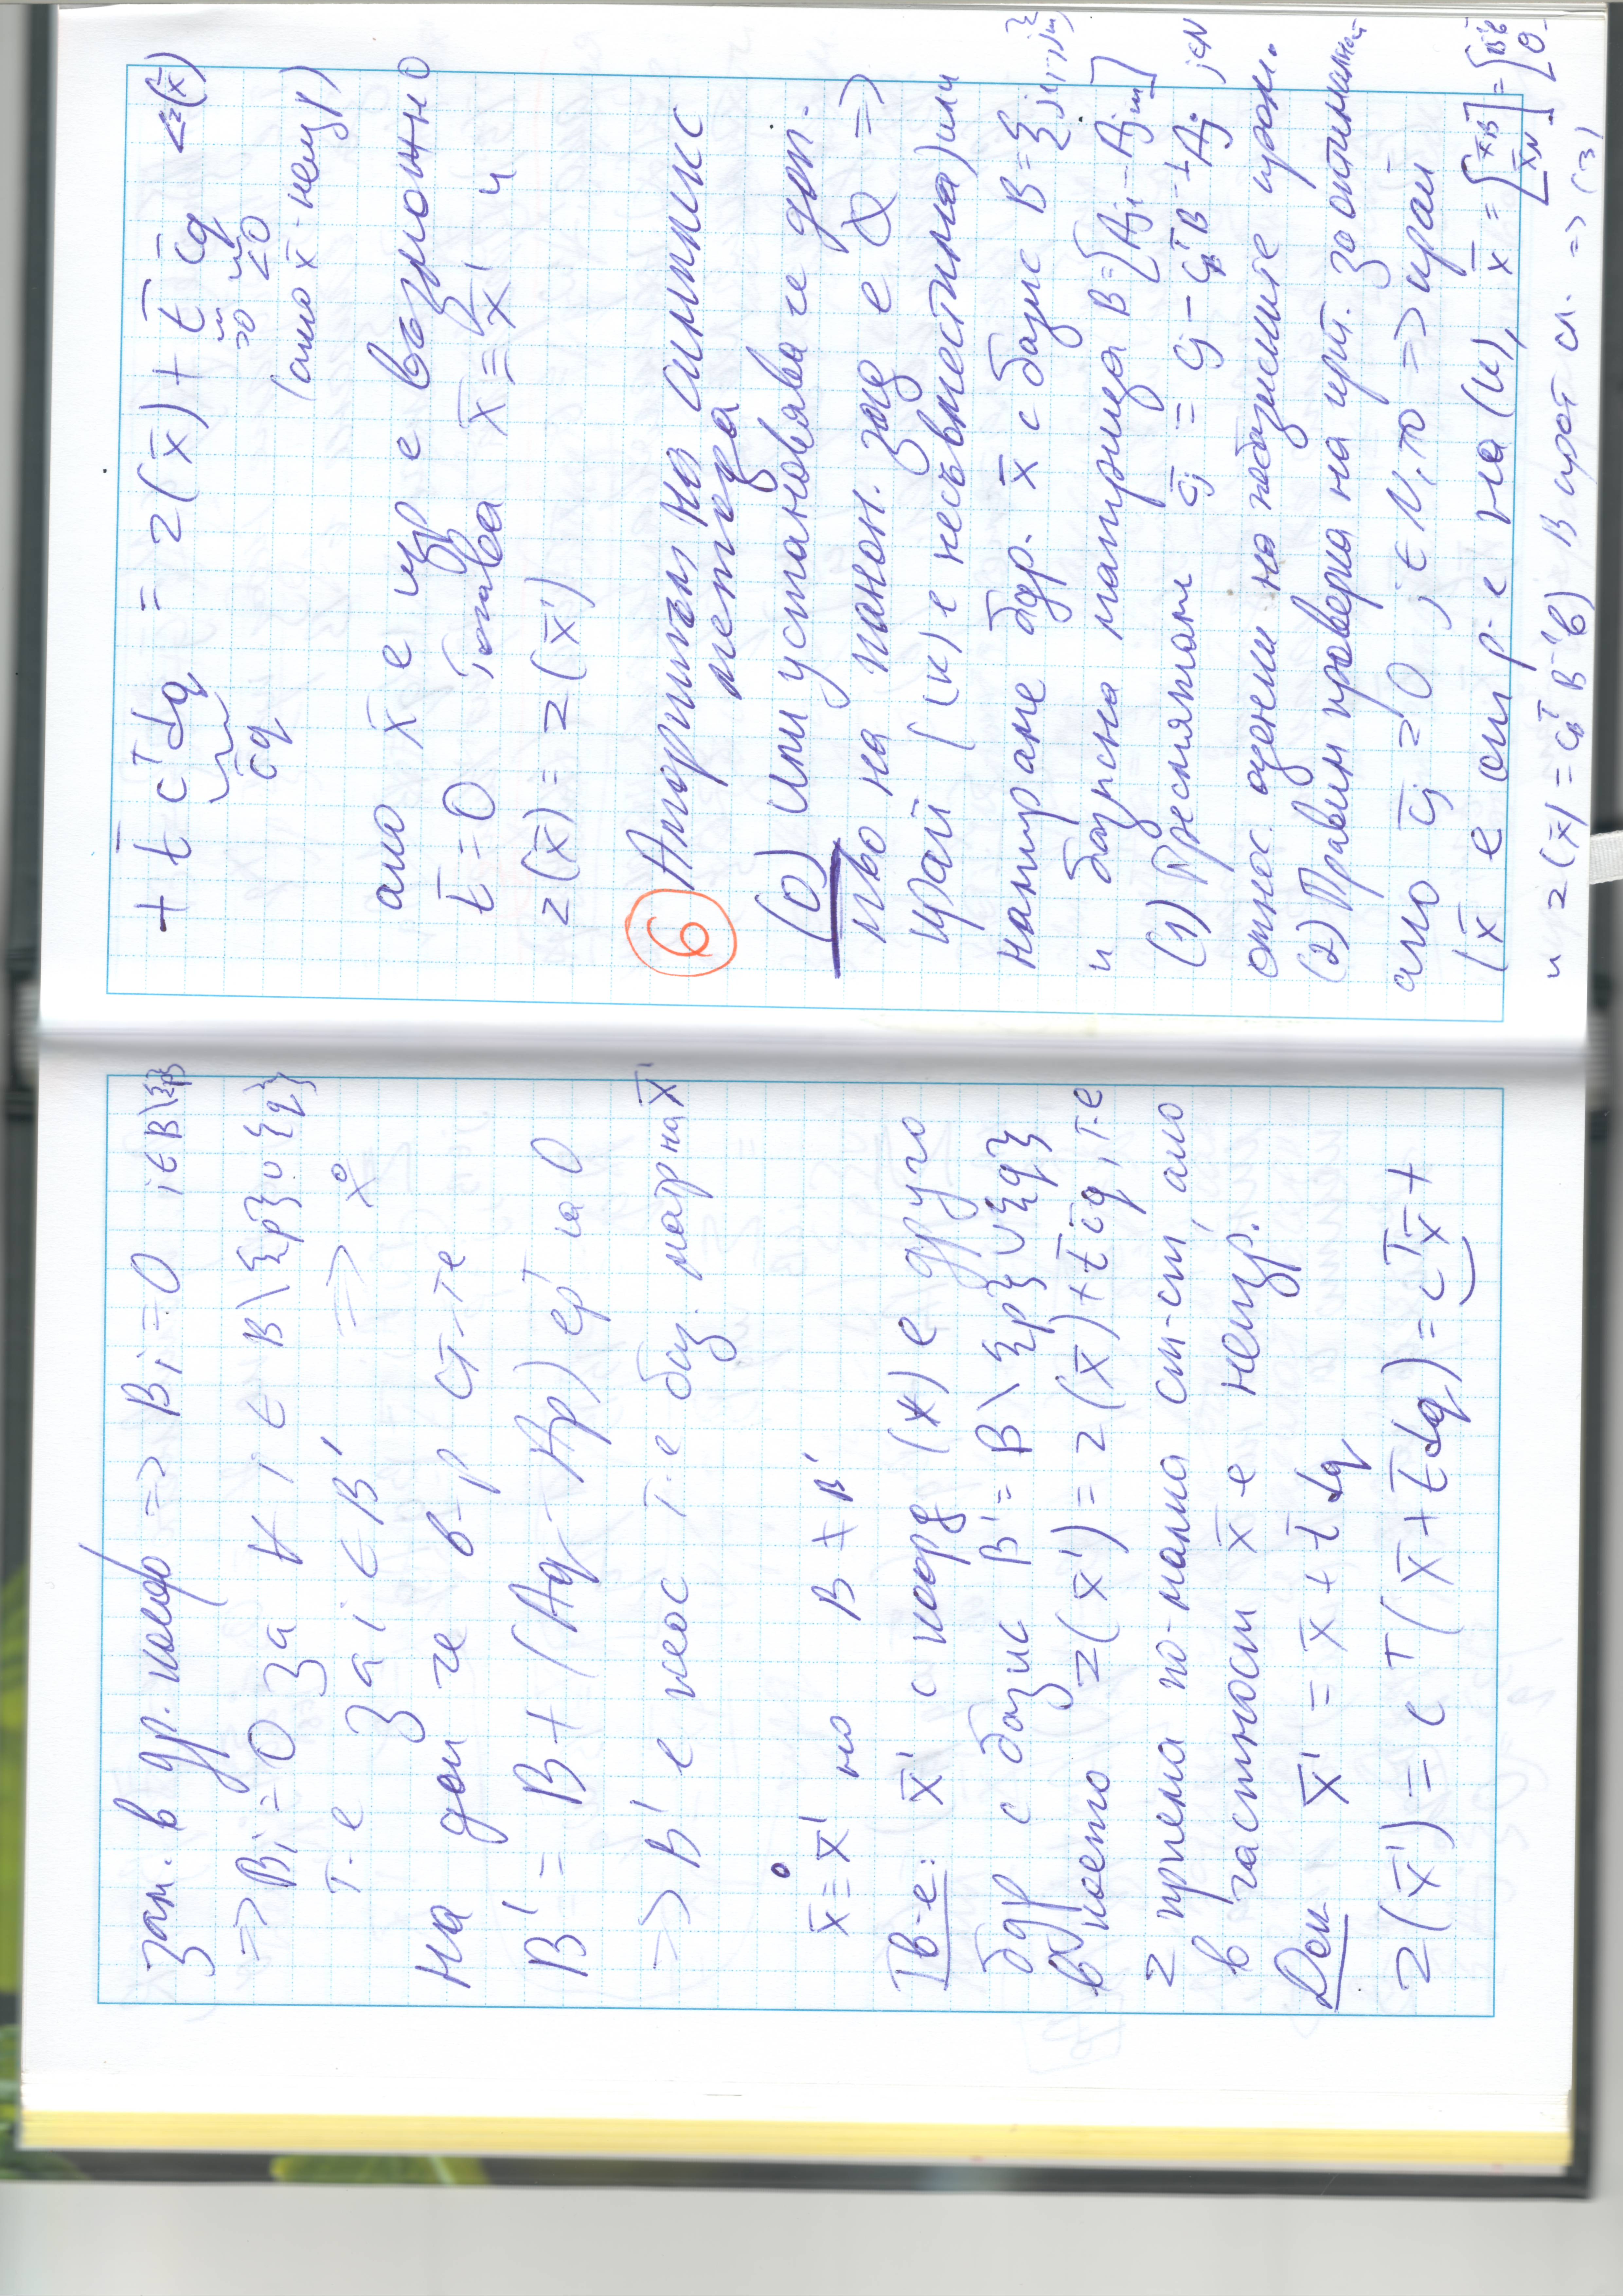 зам. в др. коеф => βi = 0 i ∈ B\{p}
=> βi = 0 за ∀ i ∈ B\{p} ∪ {q}
т.е за i ∈ B' =>
На деи че в-р ст-те
B' = B + (Aq - Ap) ep^T
=> B' е неос т.е баз. матр на x̄'
x̄ = x̄' но B ≠ B'
Тв-е: x̄' с коорд (*) е друго
бдр с базис B' = B \ {p} ∪ {q}
в/у което z(x̄') = z(x̄) + t̄ c̄q, т.е
z приема по-малка ст-ст, ако
в частност x̄ е неизр.
Док x̄' = x̄ + t̄ dq
z(x̄') = c^T (x̄ + t̄ dq) = c^T x̄ +
+ t̄ c^T dq = z(x̄) + t̄ c̄q < z(x̄)
c̄q >0 <0
(ако x̄ неизр)
ако x̄ е изр е възможно
t̄ = 0 Тогава x̄ ≡ x̄' и
z(x̄) = z(x̄')
6 Алгоритъм на симплекс
метода
(0) Или установяваме че доп.
мн-во на канон. зад е ∅ =>
край (к) е несъвместима) или
намираме бдр. x̄ с базис B = {j1,...,jm}
и базисна матрица B = [Aj1 ... Ajm]
(1) Пресмятаме c̄j = cj - cB^T B^-1 Aj j∈N
относ. оценки на небазисните пром.
(2) Правим проверка на крит. за оптималност
ако c̄j ≥ 0, j ∈ N, то => край
(x̄ е опт р-е на (к), x̄ = [x̄B x̄N] = [B^-1 b 0]
и z(x̄) = cB^T B^-1 b) В прот сл. => (3)